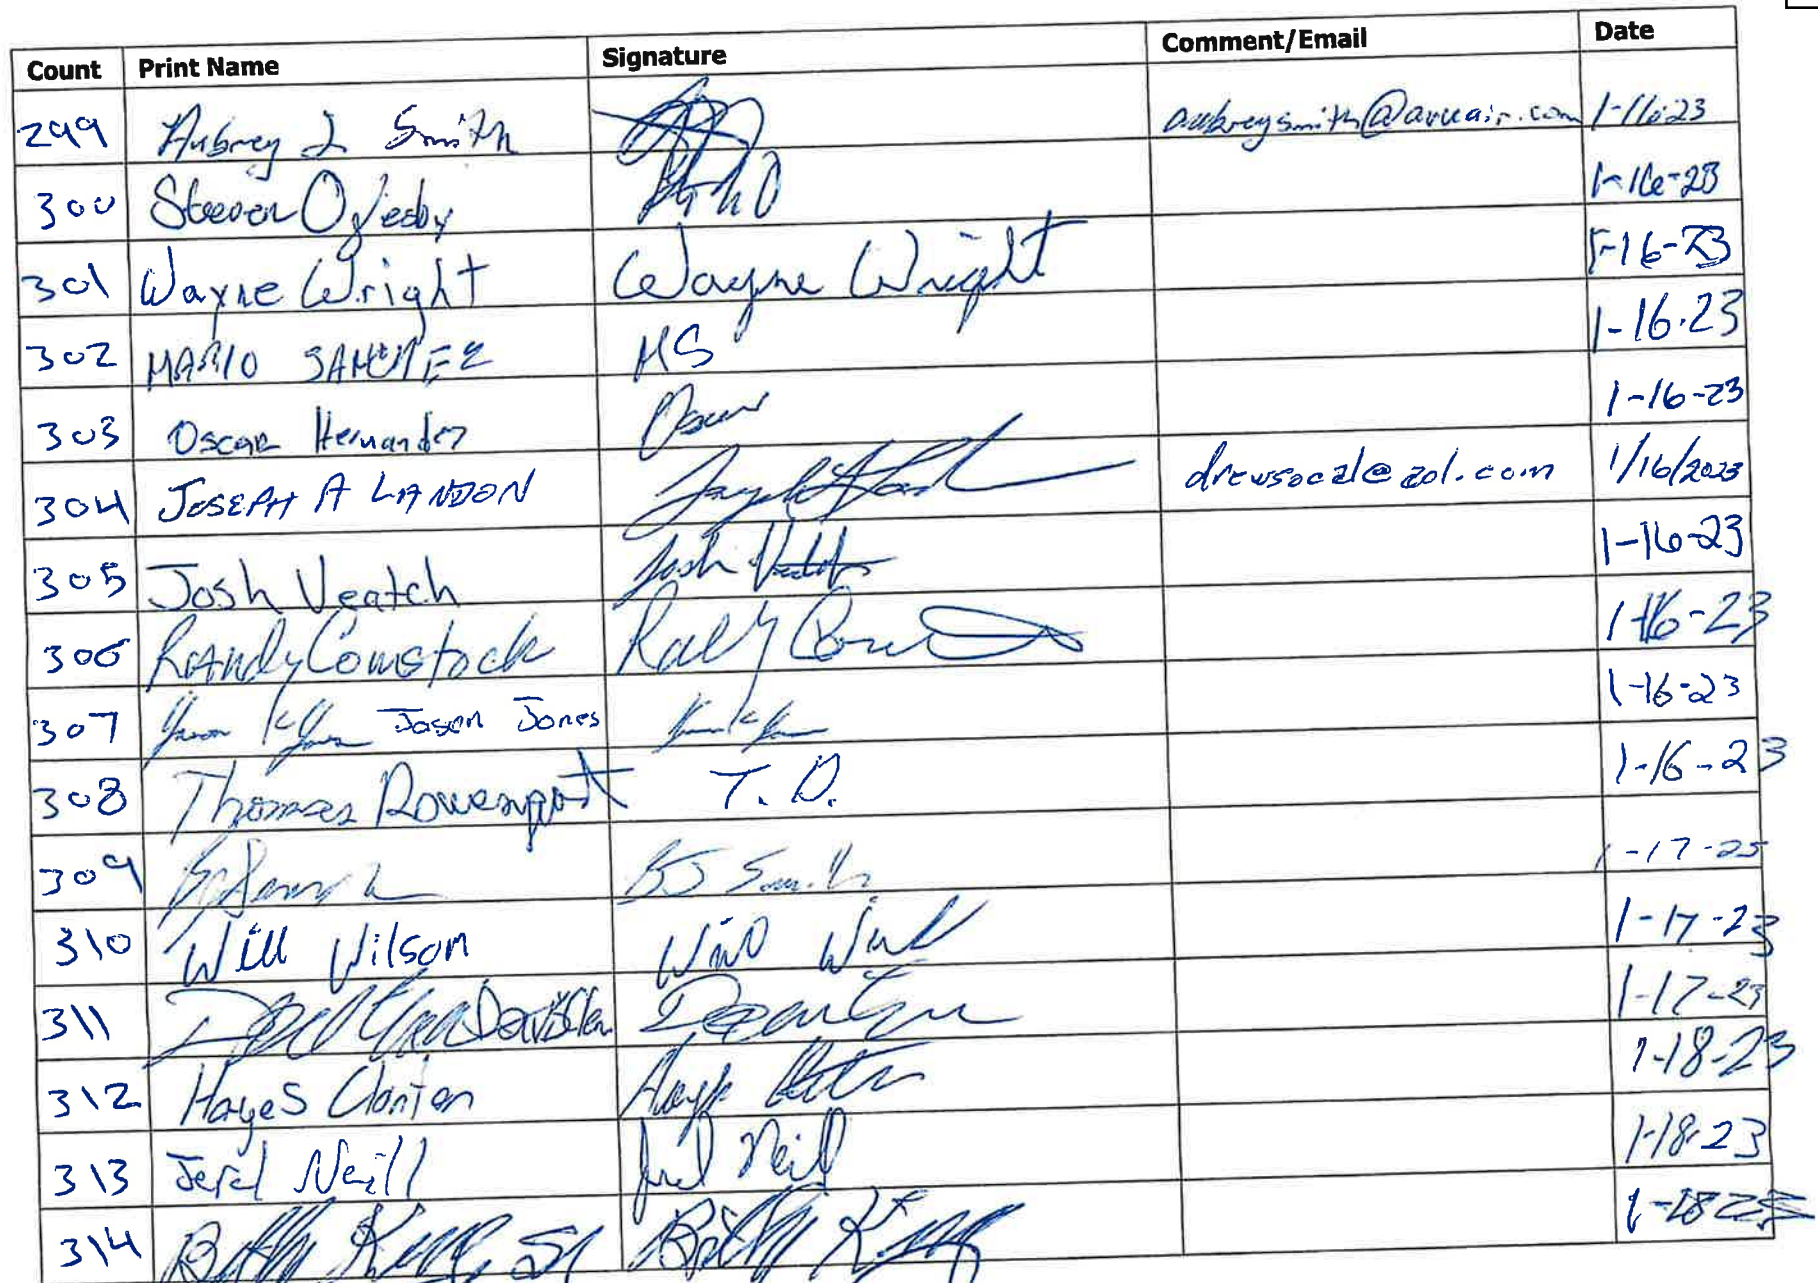 Count Print Name Signature Comment/Email Date
299 Aubrey L Smith aubreysmith@avuair.com 1-16-23
300 Steven Oglesby 1-16-23
301 Wayne Wright Wayne Wright 1-16-23
302 MARIO SANCHEZ MS 1-16-23
303 Oscar Hernandez Oscar 1-16-23
304 JOSEPH A LANDON drewsocal@aol.com 1/16/2023
305 Josh Veatch Josh Veatch 1-16-23
306 Randy Comstock 1-16-23
307 Jason Jones 1-16-23
308 Thomas Dowenport T. D. 1-16-23
309 BJ Smith 1-17-23
310 Will Wilson Will 1-17-23
311 1-17-23
312 Hayes Clanton 1-18-23
313 Jerel Neill Neill 1-18-23
314 Billy 1-18